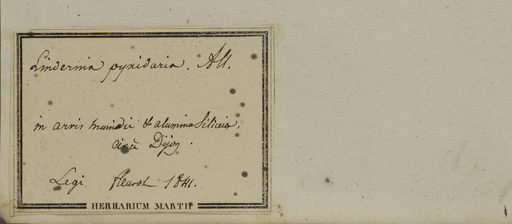 Lindernia pyxidaria. All.
in arvis humidis & alumino Siliceis,
circà Dijon.
Legi fleurot 1841.
HERBARIUM MARTII